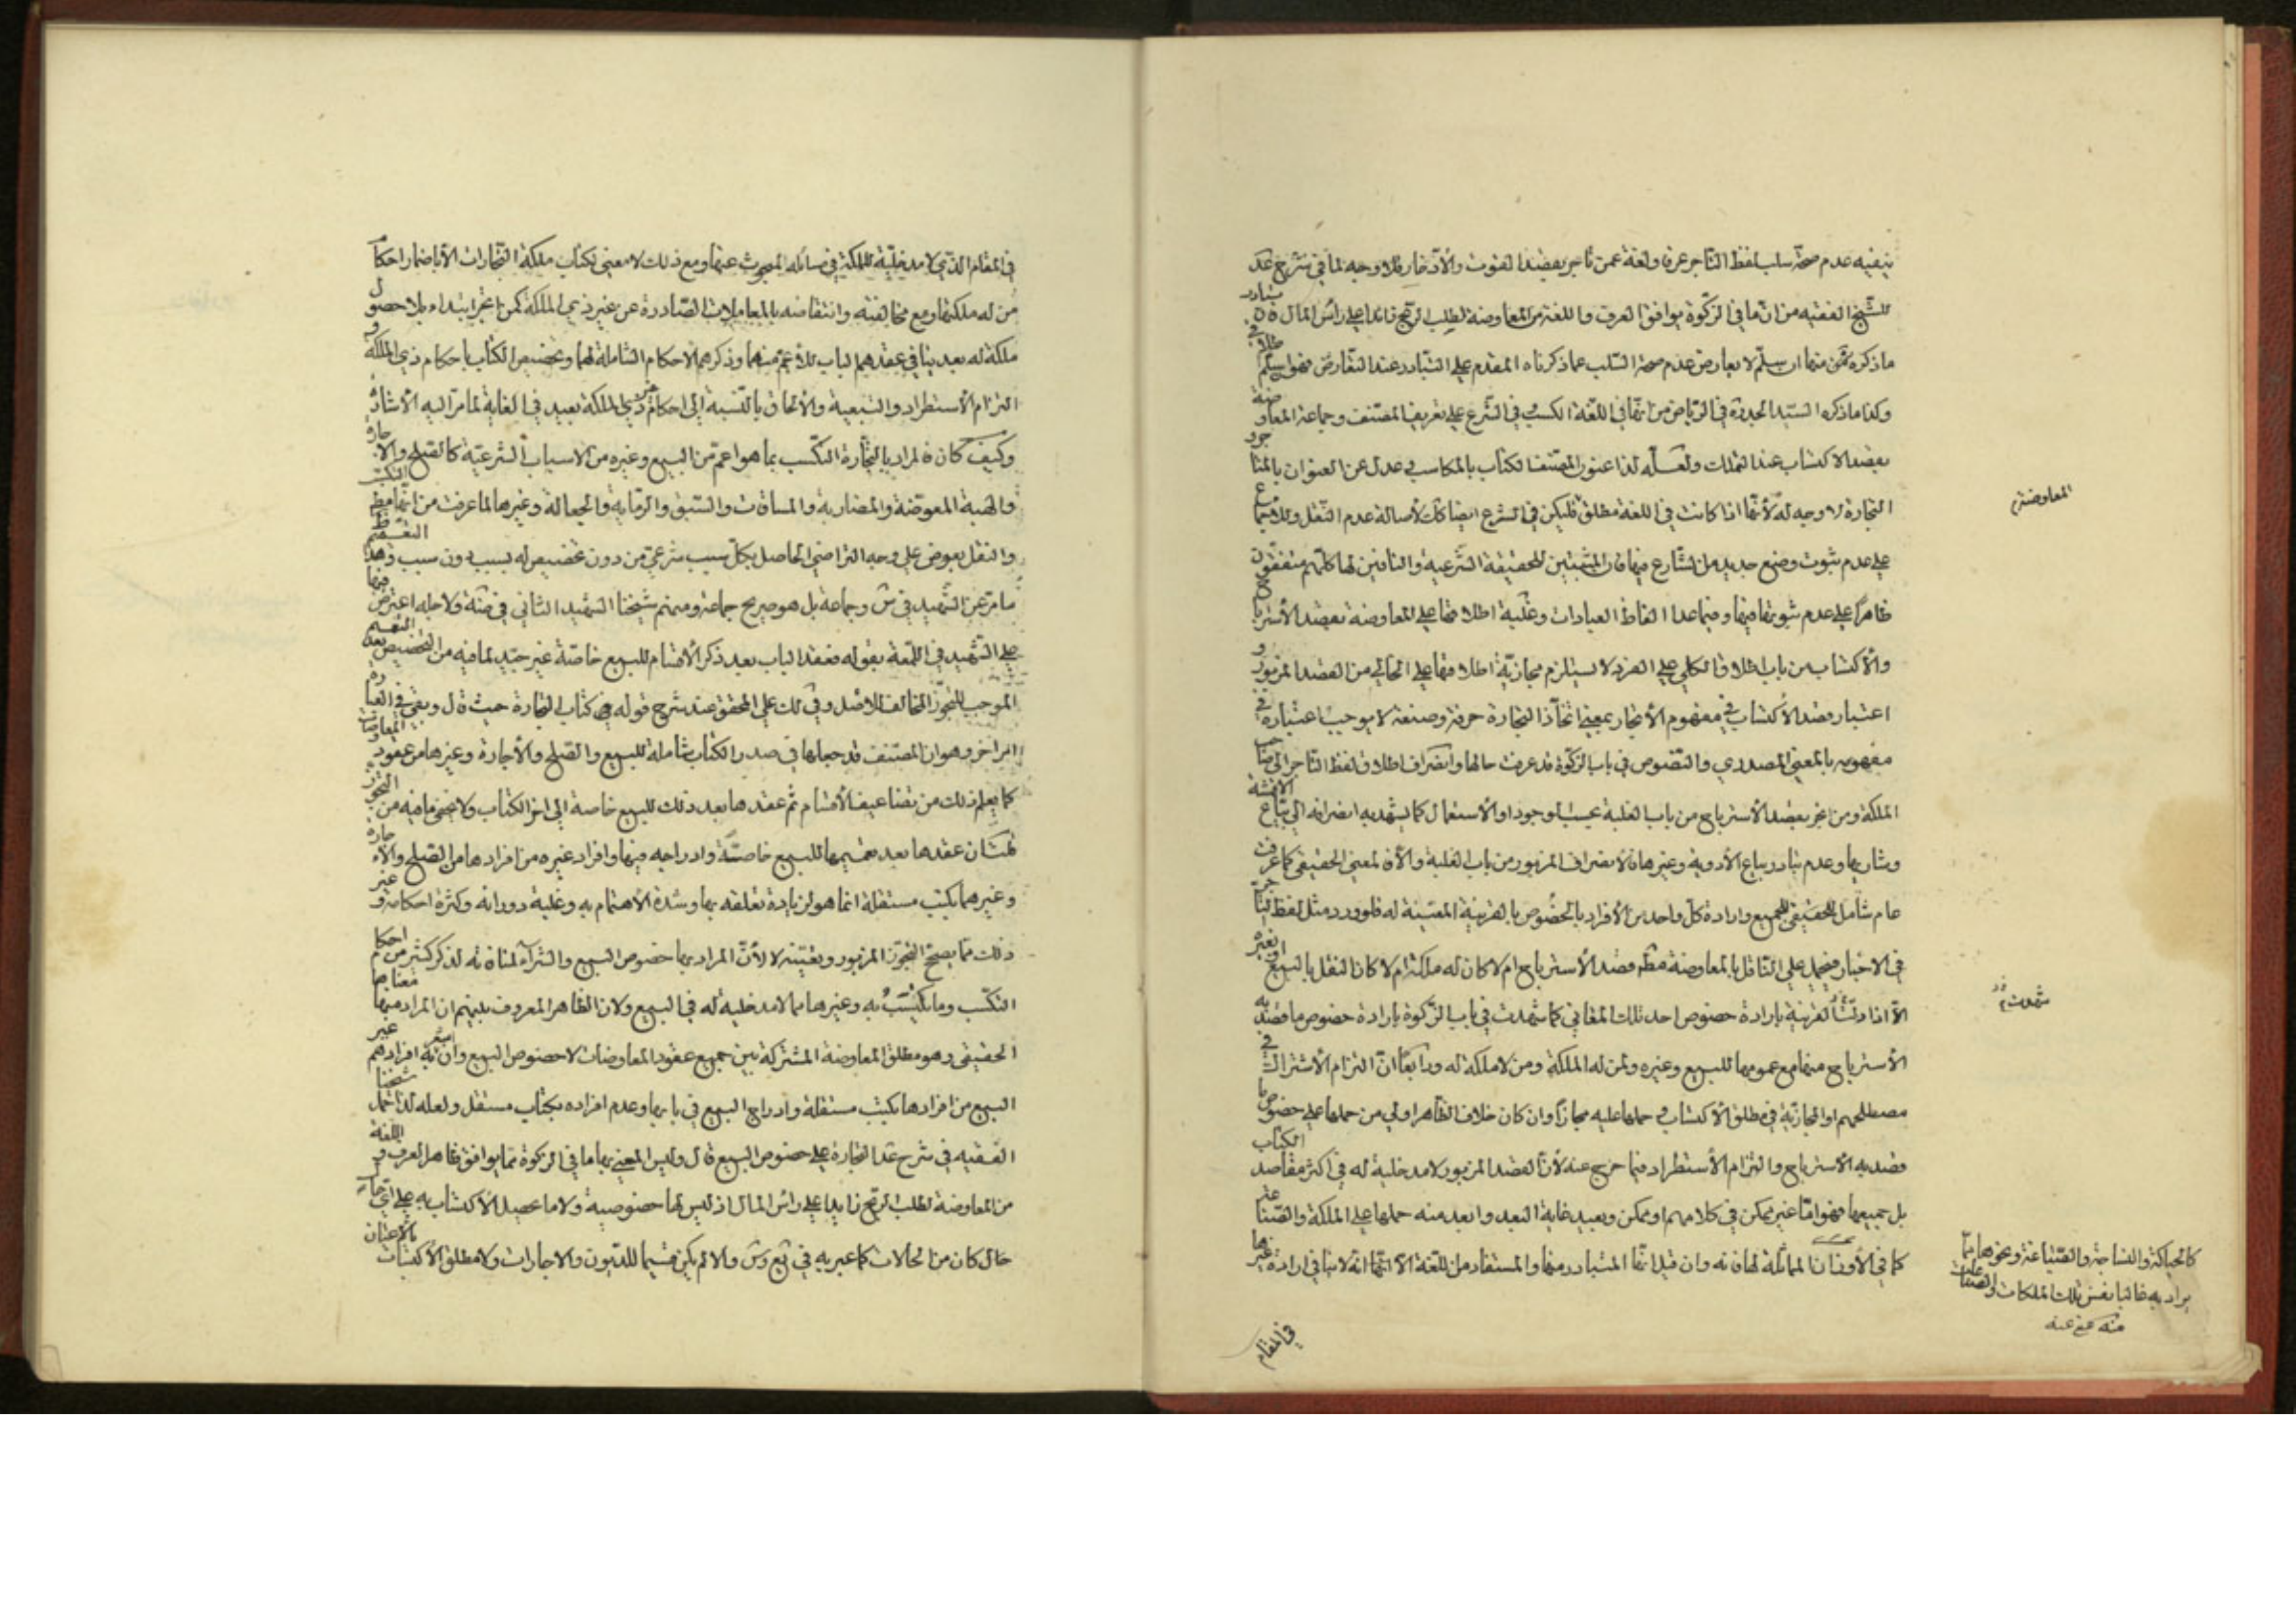 ينفيه عدم صحة سلب لفظ التاجر عرفا ولغة عمن تاجر بقصد القوت والأدخار فلا وجه لما في شرح عد
للشيخ الفقيه من ان ما في الزكوة يوافق العرف واللغة من المعاوضة لطلب الربح زائدا على رأس المال
ما ذكره ثمن منها ان سلم لا يعارض عدم صحة السلب عما ذكرناه المقدم على التبادر عند التعارض فهو
وكذا ما ذكره السيد الجد ره في الرياض من انها في اللغة الكسب وفي الشرع على تعريف المصنف وجماعة المعاوضة
بقصد الاكتساب عند التملك ولعله لذا عنون المصنف الكتاب بالمكاسب وعدل عن العنوان بالمتاجر
التجارة لا وجه له لأنها اذا كانت في اللغة مطلق فليكن في الشرع ايضا كك لأصالة عدم النقل
على عدم ثبوت وضع جديد من الشارع فيها فان المثبتين للحقيقة الشرعية والنافين لها كلهم متفقون
ظاهرا على عدم ثبوتها فيها وفيما عدا الفاظ العبادات وغلبة اطلاقها على المعاوضة بقصد الأسترباح
والأكتساب من باب اطلاق الكلي على الفرد لا يستلزم مجازية اطلاقها على الخالي من القصد المزبور و
اعتبار قصد الأكتساب في مفهوم الأتجار بمعنى اتخاذ التجارة حرفة وصنعة لا يوجب اعتباره في
مفهومه بالمعنى المصدري والنصوص في باب الزكوة قد عرفت حالها وانصراف اطلاق لفظ التاجر الى صاحب
الملكة ومن اتجر بقصد الأسترباح من باب الغلبة بحسب الوجود او الأستعمال كما يشهد به انصرافه الى بياع الاقمشة
وشاريها وعدم تبادر بياع الأدوية وغيرها فالأنصراف المزبور من باب الغلبة والأفالمعنى الحقيقي كما عرفت
عام شامل للحقيقي للجميع وارادة كل واحد من الأفراد بالخصوص بالقرينة المعينة له فلو ورد مثل لفظ التاجر
في الاخبار فيحمل على الناقل بالمعاوضة مط قصد الأسترباح ام لا كان له ملكة ام لا كان النقل بالبيع او بغيره
الا اذا دلت القرينة بارادة خصوص احد تلك المعاني كما شهدت في باب الزكوة بارادة خصوص ما قصد به
الأسترباح منها مع عمومها للبيع وغيره ولمن له الملكة ومن لا ملكة له ورابعا ان التزام الأشتراك في
مصطلحهم او المجازية في مطلق الأكتساب وحملها عليه مجازا وان كان خلاف الظاهر اولى من حملها على خصوص ما
قصد به الأسترباح والتزام الأستطراد فيما خرج عنه لأن القصد المزبور لا مدخلية له في اكثر مقاصد الكتاب
بل جميعها فهو اما غير ممكن في كلامهم او ممكن وبعيد غاية البعد وابعد منه حملها على الملكة والصناعة
كما في الأوزان المماثلة لها فانه وان قيل انها المتبادر منها والمستفاد من اللغة الا انها انه لا ينافي ارادة غيرها
في المقام
المعاوضة م
شهدت م
كالحياكة والنساجة والصناعة ونحوها مما
يراد به غالبا نفس تلك الملكات والصناعات
منه عفي عنه
في المقام الذي لا مدخلية للملكة في مسائله المبحوث عنها ومع ذلك لا معنى لكتاب ملكة التجارات الأ باضمار احكام
من له ملكتها ومع مخالفته وانتقاضه بالمعاملات الصادرة عن غير ذي الملكة كمن تاجر ابتداء بلا حصول
ملكة له بعد ينافي عقدهم الباب للأعم منهما وذكرهم الأحكام الشاملة لهما وتخصيص الكتاب باحكام ذي الملكة و
التزام الأستطراد والتبعية والألحاق بالنسبة الى احكام غير ذي الملكة بعيد في الغاية لما مر اليه الأشارة
وكيف كان فالمراد بالتجارة التكسب بما هو اعم من البيع وغيره من الاسباب الشرعية كالصلح والاجارة
والهبة المعوضة والمضاربة والمساقات والسبق والرماية والجعالة وغيرها لما عرفت من انها مطلق التكسب
والنقل بعوض على وجه التراضي الحاصل بكل سبب شرعي من دون تخصيص له بسبب دون سبب وهذا
ما مر عن الشهيد في س وجماعة بل هو صريح جماعة ومنهم شيخنا الشهيد الثاني في ضة ولاجله اعترض فيها
على الشهيد في اللمعة بقوله فعقد الباب بعد ذكر الأقسام للبيع خاصة غير جيد لما فيه من التخصيص بعد التعميم
الموجب للتجوز المخالف للاصل وفي لك على المحقق عند شرح قوله في كتاب التجارة حيث قال وبقي في العبارة
امر اخر وهو ان المصنف قد جعلها في صدر الكتاب شاملة للبيع والصلح والأجارة وغيرها من عقود المعاوضات
كما يعلم ذلك من تضاعيف الأقسام ثم عقدها بعد ذلك للبيع خاصة الى اخر الكتاب ولا يخفى ما فيه من التجوز
عقدها بعد تعميمها للبيع خاصة وادراجه فيها وافراد غيره من افرادها من الصلح والاجارة
وغيرهما بكتب مستقلة انما هو لزيادة تعلقه بها وشدة الأهتمام به وغلبة دورانه وكثرة احكامه وغير
ذلك مما يصح التجوز المزبور ويعينه لا لأن المراد بها خصوص البيع والشراء لمنافاته لذكر كثير من احكام
التكسب وما يكتسب به وغيرها مما لا مدخلية له في البيع ولان الظاهر المعروف بينهم ان المراد منها معناها
الحقيقي وهو مطلق المعاوضة المشتركة بين جميع عقود المعاوضات لا خصوص البيع وان افرادهم غير
البيع من افرادها بكتب مستقلة وادراج البيع في بابها وعدم افراده بكتاب مستقل ولعله لذا حمل شيخنا
الفقيه في شرح عد التجارة على خصوص البيع قال وليس المعنى بها ما في الزكوة مما يوافق ظاهر العرف و اللغة
من المعاوضة لطلب الربح زايدا على رأس المال اذ ليس لها خصوصية ولا ما تحصيل الأكتساب به على اي حال
حال كان من الحالات كما عبر به في والا لم يكن قسيما للديون والاجارات ولا مطلق الأكتساب بالأعيان